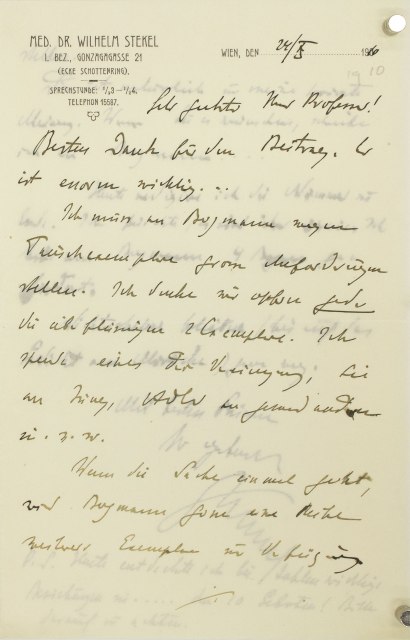 MED. DR. WILHELM STEKEL
I. BEZ., GONZAGAGASSE 21
(ECKE SCHOTTENRING).
SPRECHSTUNDE: ½3–¼4.
TELEPHON 15567.
WIEN, DEN 24/X 1910
1910
Sehr geehrter Herr Professor!
Besten Dank für den Beitrag. Er
ist enorm wichtig...
Ich muss an Bergmann wegen
Tauschexemplare grosse Anforderungen
stellen. Ich denke wir opfern jeder
die überflüssigen 2 Exemplare. Ich
spende eines der Vereinigung, Sie
an Jung, Adler an jemand anderen
u. s. w.
Wenn die Sache einmal geht,
wird Bergmann gerne eine Reihe
Exemplare zur Verfügung